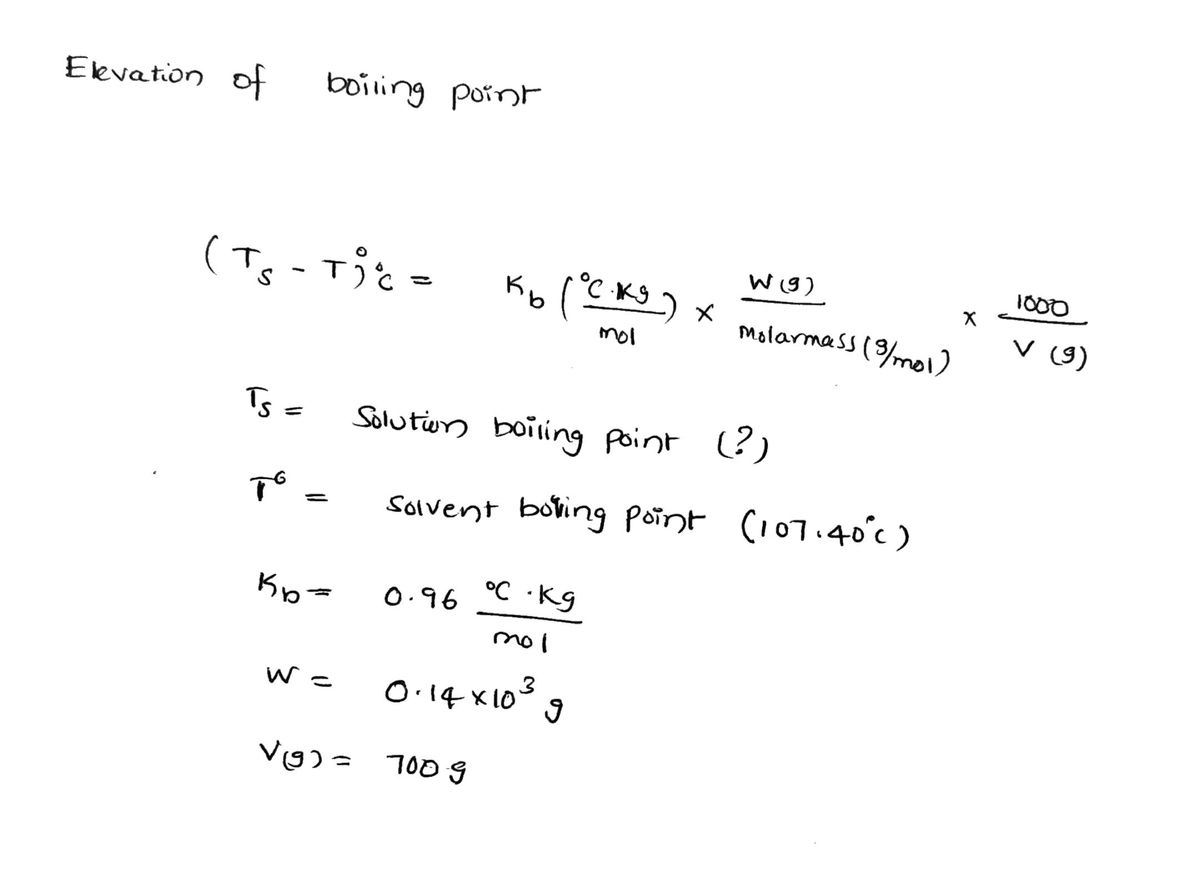 Elevation of boiling point
(Ts - T°)°C = Kb (°C·Kg/mol) × W(g)/Molarmass(g/mol) × 1000/V(g)
Ts = Solution boiling point (?)
T° = Solvent boiling point (107.40°C)
Kb = 0.96 °C·Kg/mol
W = 0.14×10³ g
V(g) = 700 g